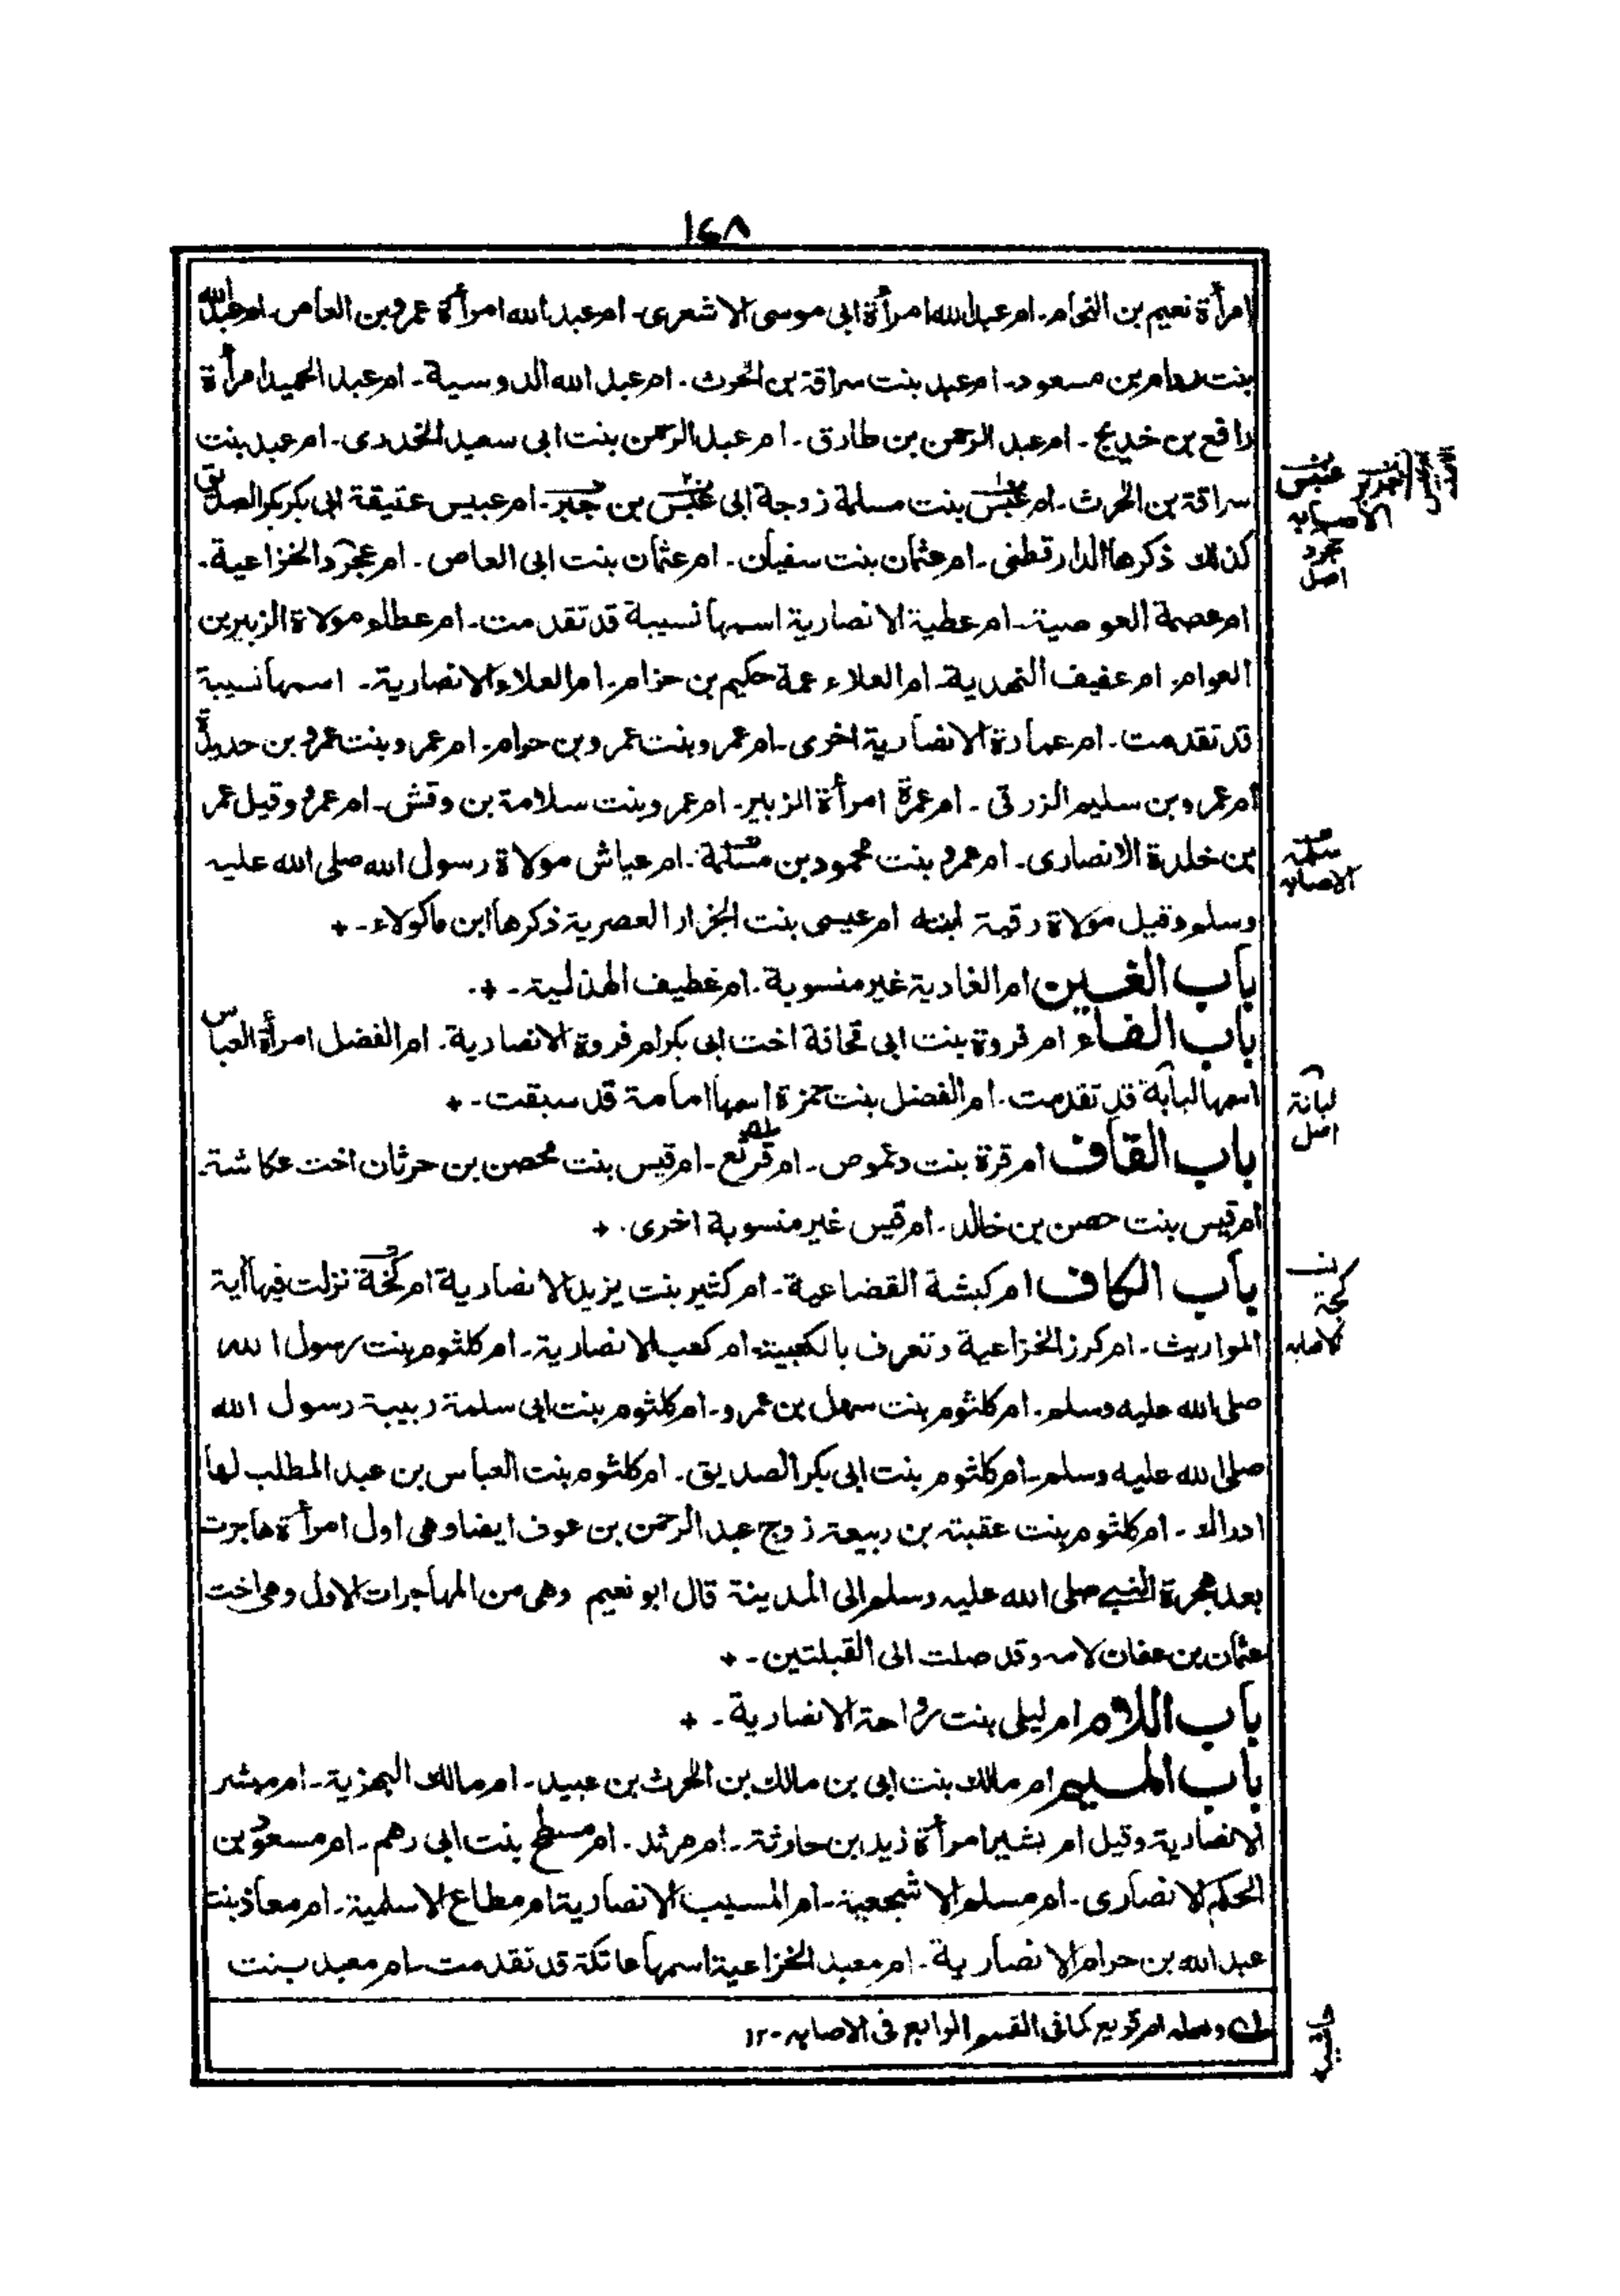 ١٤٨
امرأة نعيم بن النحام۔ ام عبد الله امرأة ابى موسى الاشعرى۔ ام عبد الله امرأة عمرو بن العاص۔ ام عبد الله
بنت بن مسعود۔ ام عبد بنت سراقة بن الحرث۔ ام عبد الله الدوسية۔ ام عبد الحميد امرأة
رافع بن خديج۔ ام عبد الرحمن بن طارق۔ ام عبد الرحمن بنت ابى سعيد الخدرى۔ ام عبد بنت
سراقة بن الحرث۔ ام عبس بنت مسلمة زوجة ابى عبس بن جبر۔ ام عبيس عتيقة ابى بكر الصديق
كذلك ذكرها الدارقطنى۔ ام عثمان بنت سفيان۔ ام عثمان بنت ابى العاص۔ ام عجرد الخزاعية۔
ام عصمة العوصية۔ ام عطية الانصارية اسمها نسيبة قد تقدمت۔ ام عطاء مولاة الزبير بن
العوام۔ ام عفيف النهدية۔ ام العلاء عمة حكيم بن حزام۔ ام العلاء الانصارية۔ اسمها نسيبة
قد تقدمت۔ ام عمارة الانصارية اخرى۔ ام عمرو بنت عمرو بن حرام۔ ام عمرو بنت عمرو بن حديدة
ام عمرو بن سليم الزرقى۔ ام عمرة امرأة الزبير۔ ام عمرو بنت سلامة بن وقش۔ ام عمرو وقيل عمر
بن خلدة الانصارى۔ ام عمرو بنت محمود بن مسلمة۔ ام عياش مولاة رسول الله صلى الله عليه
وسلم وقيل مولاة رقية ابنته ام عيسى بنت الجزار العصرية ذكرها ابن ماكولاء۔ +
باب الغين ام الغادية غير منسوبة۔ ام غطيف الهذلية۔ +
باب الفاء ام فروة بنت ابى قحافة اخت ابى بكر ام فروة الانصارية۔ ام الفضل امرأة العباس
اسمها لبابة قد تقدمت۔ ام الفضل بنت حمزة اسمها امامة قد سبقت۔ +
باب القاف ام قرة بنت دعموص۔ ام قريع۔ ام قيس بنت محصن بن حرثان اخت عكاشة۔
ام قيس بنت حصن بن خالد۔ ام قيس غير منسوبة اخرى۔ +
باب الكاف ام كبشة القضاعية۔ ام كثير بنت يزيد الانصارية ام كحة نزلت فيها آية
المواريث۔ ام كرز الخزاعية وتعرف بالكعبية۔ ام كعب الانصارية۔ ام كلثوم بنت رسول الله
صلى الله عليه وسلم۔ ام كلثوم بنت سهل بن عمرو۔ ام كلثوم بنت ابى سلمة ربيبة رسول الله
صلى الله عليه وسلم۔ ام كلثوم بنت ابى بكر الصديق۔ ام كلثوم بنت العباس بن عبد المطلب لها
ادراك۔ ام كلثوم بنت عقبته بن ربيعة زوج عبد الرحمن بن عوف ايضا وهى اول امرأة هاجرت
بعد هجرة النبى صلى الله عليه وسلم الى المدينة قال ابو نعيم وهى من المهاجرات الاول وهى اخت
عثمان بن عفان لامه وقد صلت الى القبلتين۔ +
باب اللام ام ليلى بنت رواحة الانصارية۔ +
باب الميم ام مالك بنت ابى بن مالك بن الحرث بن عبيد۔ ام مالك البهزية۔ ام مبشر
الانصارية وقيل ام بشير امرأة زيد بن حارثة۔ ام مرثد۔ ام مسطح بنت ابى رهم۔ ام مسعود بن
الحكم الانصارى۔ ام مسلم الاشجعية۔ ام المسيب الانصارية ام مطاع الاسلمية۔ ام معاذ بنت
عبد الله بن حرام الانصارية۔ ام معبد الخزاعية اسمها عاتكة قد تقدمت۔ ام معبد بنت
كما فى القسم الرابع فى الاصابه۔ ١٢
عبس
الاصابه
عجرد
اصل
سلمة
الاصابه
لبانة
اصل
بنت
كجة
الاصابه